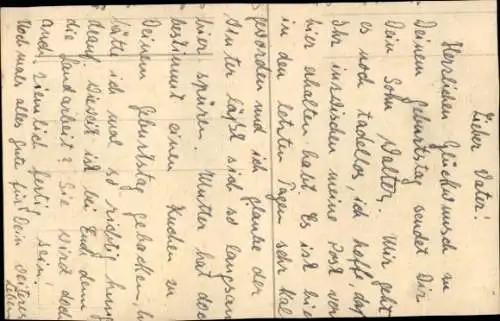 Lieber Vater!
Herzlichen Glückwunsch zu
Deinem Geburtstag sendet Dir
Dein Sohn Walter. Mir geht
es noch tadellos, ich hoff, daß
Ihr inzwischen meine Post von
hier erhalten habt. Es ist hier
in den letzten Tagen sehr kal
geworden und ich glaube der
Winter läßt sich so langsam
hier spüren. Mutter hat doch
bestimmt einen Kuchen zu
Deinem Geburtstag gebacken,
hätte ich mal so richtig hung
drauf. Wieweit ist bei Euch denn
die Landarbeit? Sie wird doch
auch ziemlich fertig sein!
Nochmals alles gute für Dein weiteres
Leben